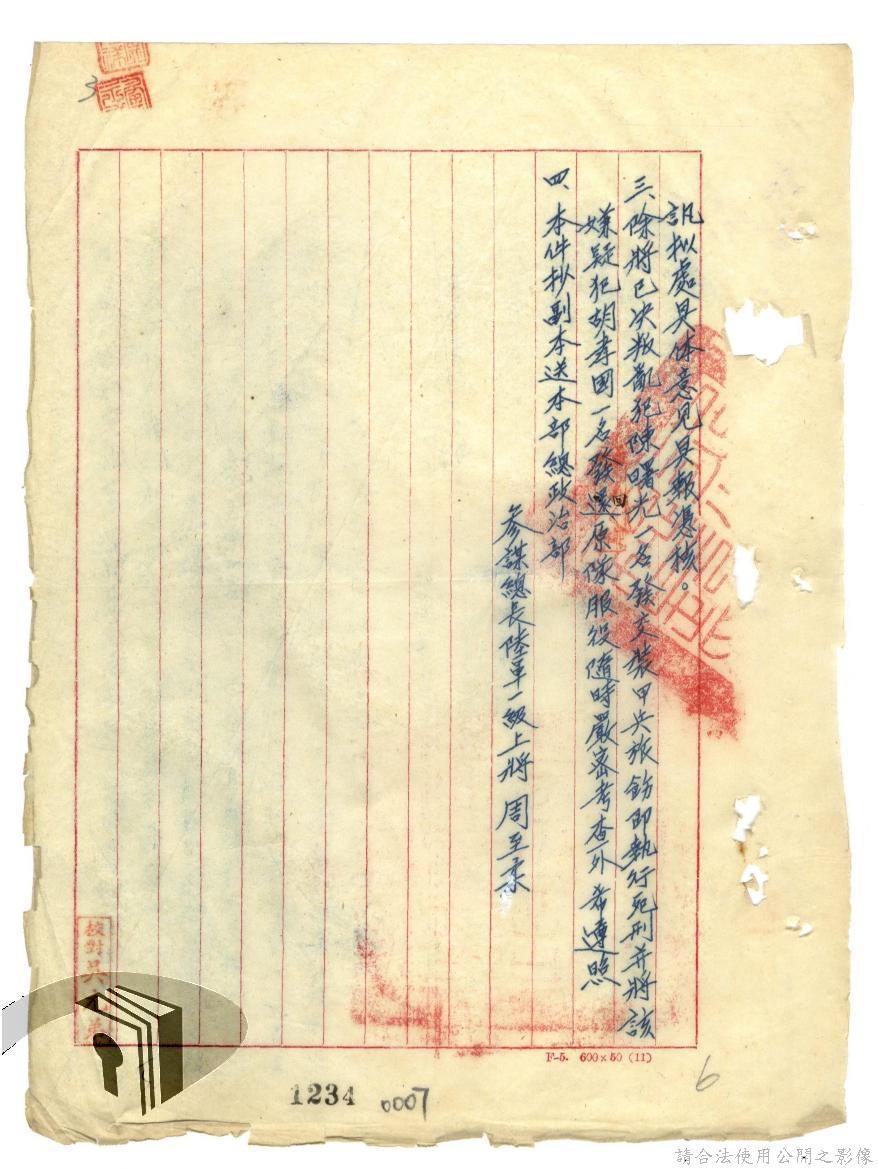 訊拟處具体意见具報憑核。
三、除將已决叛亂犯陳曙光一名發交裝甲兵旅飭即執行死刑并將該
嫌疑犯胡壽國一名發還回原隊服役隨時嚴密考查外希遵照
四、本件抄副本送本部總政治部
參謀總長陸軍一級上將 周至柔
校對吳
3
F-5. 600×50 (11)
6
1234 0007
請合法使用公開之影像